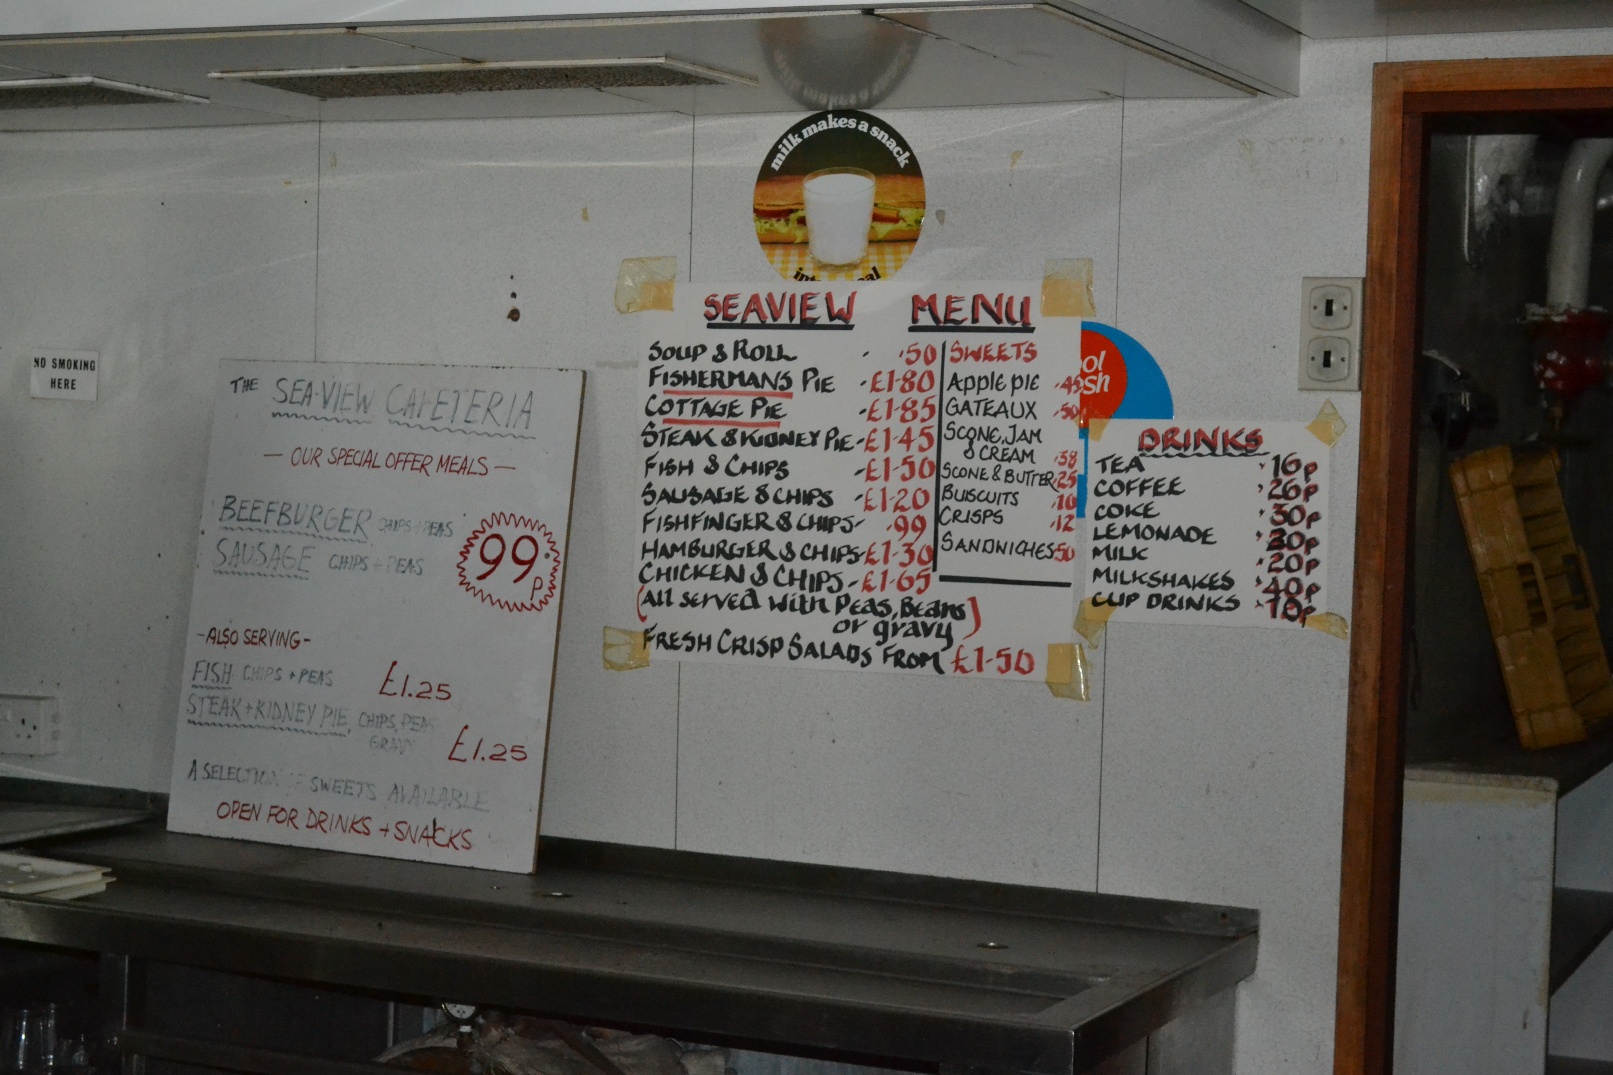 milk makes a snack
NO SMOKING
HERE
THE SEA-VIEW CAFETERIA
— OUR SPECIAL OFFER MEALS —
BEEFBURGER CHIPS + PEAS
SAUSAGE CHIPS + PEAS
99p
-ALSO SERVING-
FISH CHIPS + PEAS £1.25
STEAK + KIDNEY PIE, CHIPS, PEAS
GRAVY £1.25
A SELECTION OF SWEETS AVAILABLE
OPEN FOR DRINKS + SNACKS
SEAVIEW MENU
SOUP & ROLL ·50
FISHERMANS PIE -£1·80
COTTAGE PIE -£1·85
STEAK & KIDNEY PIE-£1·45
FISH & CHIPS -£1·50
SAUSAGE & CHIPS -£1·20
FISHFINGER & CHIPS- ·99
HAMBURGER & CHIPS-£1·30
CHICKEN & CHIPS-£1·65
(All served with Peas, Beans
or gravy)
FRESH CRISP SALADS FROM £1·50
SWEETS
Apple pie ·45
GATEAUX ·50
SCONE, JAM
& CREAM ·38
SCONE & BUTTER ·25
BUISCUITS ·10
CRISPS ·12
SANDWICHES ·50
DRINKS
TEA ·16p
COFFEE ·26p
COKE ·30p
LEMONADE
MILK ·20p
MILKSHAKES ·40p
CUP DRINKS ·10p